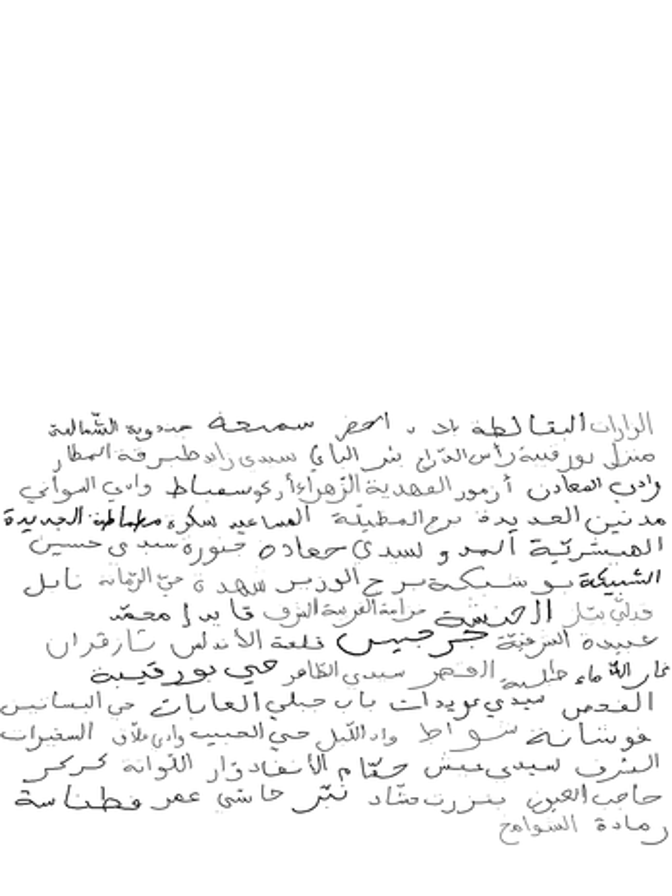 الزارات البقالطة باد الخضر سميعة جندوبة الشّمالية
منزل بورقيبة رأس الدّراع بئر الباي سيدي زايد طبرقة المطار
وادي المعادن أزمور المهدية الزّهراء أركو سفساط وادي السواني
مدنين الجديدة برج المطيلّة المساعيد سكرة مطماطة الجديدة
الهيشريّة المدو لسيدي حمادة خنورة سيدي حسين
الشبيكة بوشبيكة برج الوزير شهدة حيّ الرّمانة نابل
قدليّ بتار الحنشة حزامة الغربية الشرف قايد إمحمّد
عبيدة الشرقيّة جرجيس قلعة الأندلس تازقران
مار اللّه ماء حلبة القصر سيدي الظّاهر حي بورقيبة
الفحص سيدي بوزيدات باب جبلي الغابات حي البساتين
فوشانة شواط واد اللّيل حيّ الحبيب وادي ملاّق السفيرات
الشرف لسيدي عيش حمّام الأنف دوّار اللّواتة كركر
حاجب العيون بنزرت حشّاد نبّر حاشي عمر فطناسة
رمادة السّوامح